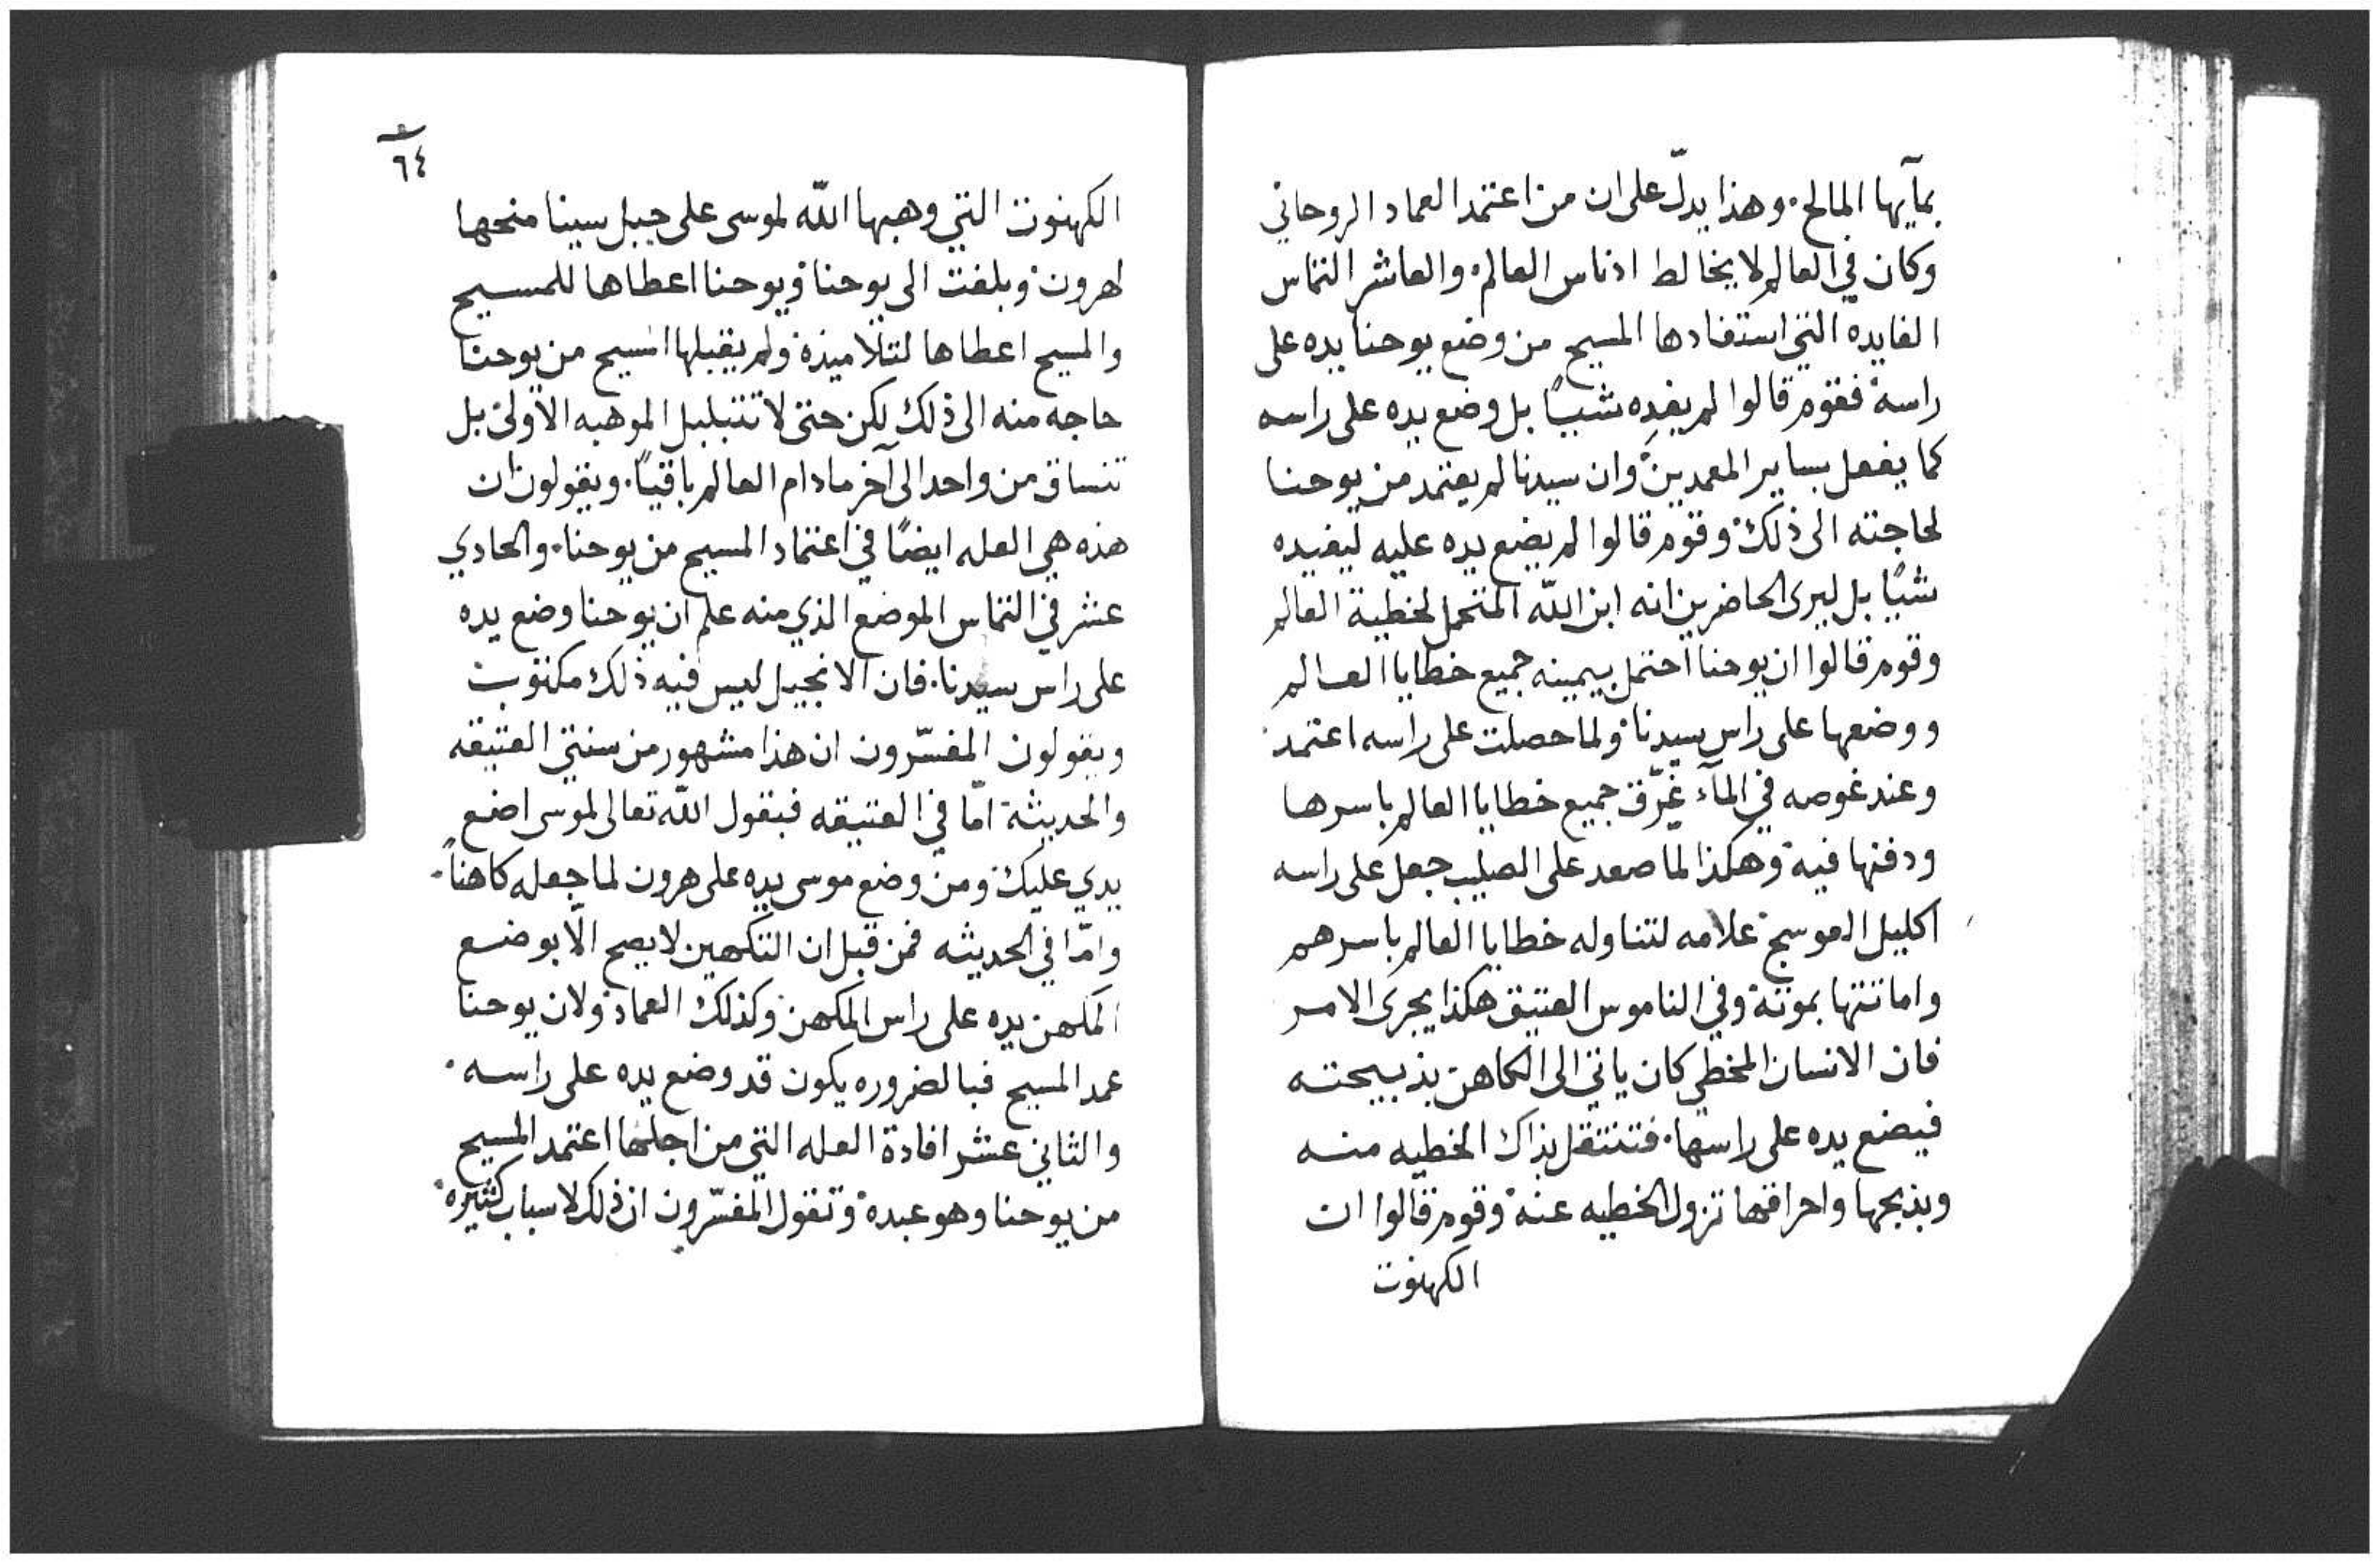 بمآيها المالح. وهذا يدلّ على ان من اعتمد العماد الروحاني
وكان في العالم لا يخالط ادناس العالم. والعاشر التماس
الفايده التي استفادها المسيح من وضع يوحنا يده على
راسه. فقوم قالوا لم يفده شيئًا بل وضع يده على راسه
كما يفعل بساير المعمدين. وان سيدنا لم يعتمد من يوحنا
لحاجته الى ذلك. وقوم قالوا لم يضع يده عليه ليفيده
شيًا بل ليرى الحاضرين انه ابن اللّه المتحمل لخطية العالم
وقوم قالوا ان يوحنا احتمل بيمينه جميع خطايا العالم
ووضعها على راس سيدنا. ولما حصلت على راسه اعتمد.
وعند غوصه في المآء غرّق جميع خطايا العالم باسرها
ودفنها فيه. وهكذا لما صعد على الصليب جعل على راسه
اكليل العوسج. علامه لتناوله خطايا العالم باسرهم
واماتتها بموته. وفي الناموس العتيق هكذا يجرى الامر
فان الانسان المخطي كان ياتي الى الكاهن بذبيحته
فيضع يده على راسها. فتنتقل بذاك الخطيه منه
وبذبحها واحراقها تزول الخطيه عنه. وقوم قالوا ان
الكهنوت
٦٤
الكهنوت التي وهبها اللّه لموسى على جبل سينا منحها
لهرون. وبلغت الى يوحنا. ويوحنا اعطاها للمسيح
والمسيح اعطاها لتلاميذه. ولم يقبلها المسيح من يوحنا
حاجه منه الى ذلك لكن حتى لا تتبلبل الموهبه الاولى بل
تنساق من واحد الى آخر ما دام العالم باقيًا. ويقولون ان
هذه هي العله ايضًا في اعتماد المسيح من يوحنا. والحادي
عشر في التماس الموضع الذي منه علم ان يوحنا وضع يده
على راس سيدنا. فان الانجيل ليس فيه ذلك مكتوب
ويقولون المفسّرون ان هذا مشهور من سنتي العتيقه
والحديثة امّا في العتيقه فبقول اللّه تعالى لموسى اضع
يدي عليك. ومن وضع موسى يده على هرون لما جعله كاهنًا.
وامّا في الحديثه فمن قبل ان التكهين لا يصح الّا بوضع
المكهن يده على راس المكهن وكذلك العماد. ولان يوحنا
عمد المسيح فبالضروره يكون قد وضع يده على راسه.
والثاني عشر افادة العله التي من اجلها اعتمد المسيح
من يوحنا وهو عبده. وتقول المفسّرون ان ذلك لاسباب كثيره.